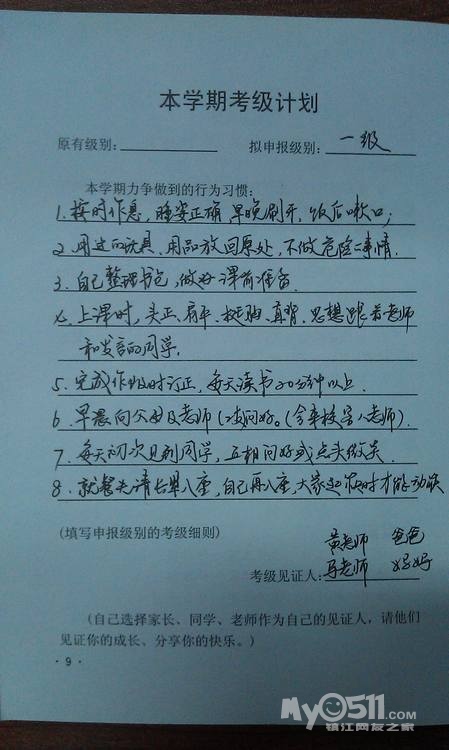 本学期考级计划
原有级别： 拟申报级别：一级
本学期力争做到的行为习惯：
1.按时作息，睡姿正确，早晚刷牙，饭后嗽口；
2.用过的玩具、用品放回原处，不做危险的事情.
3.自己整理书包，做好课前准备.
4.上课时，头正、肩平、挺胸、直背、思想跟着老师
和发言的同学.
5.完成作业及时订正，每天读书20分钟以上.
6.早晨向父母及老师问好。(含本校老师).
7.每天初次见到同学，互相问好或点头微笑.
8.就餐先请长辈入座，自己再入座，大家起
(填写申报级别的考级细则)
黄老师 爸爸
考级见证人：马老师 妈妈
(自己选择家长、同学、老师作为自己的见证人，请他们
见证你的成长、分享你的快乐。)
·9·
My0511.com
镇江网友之家